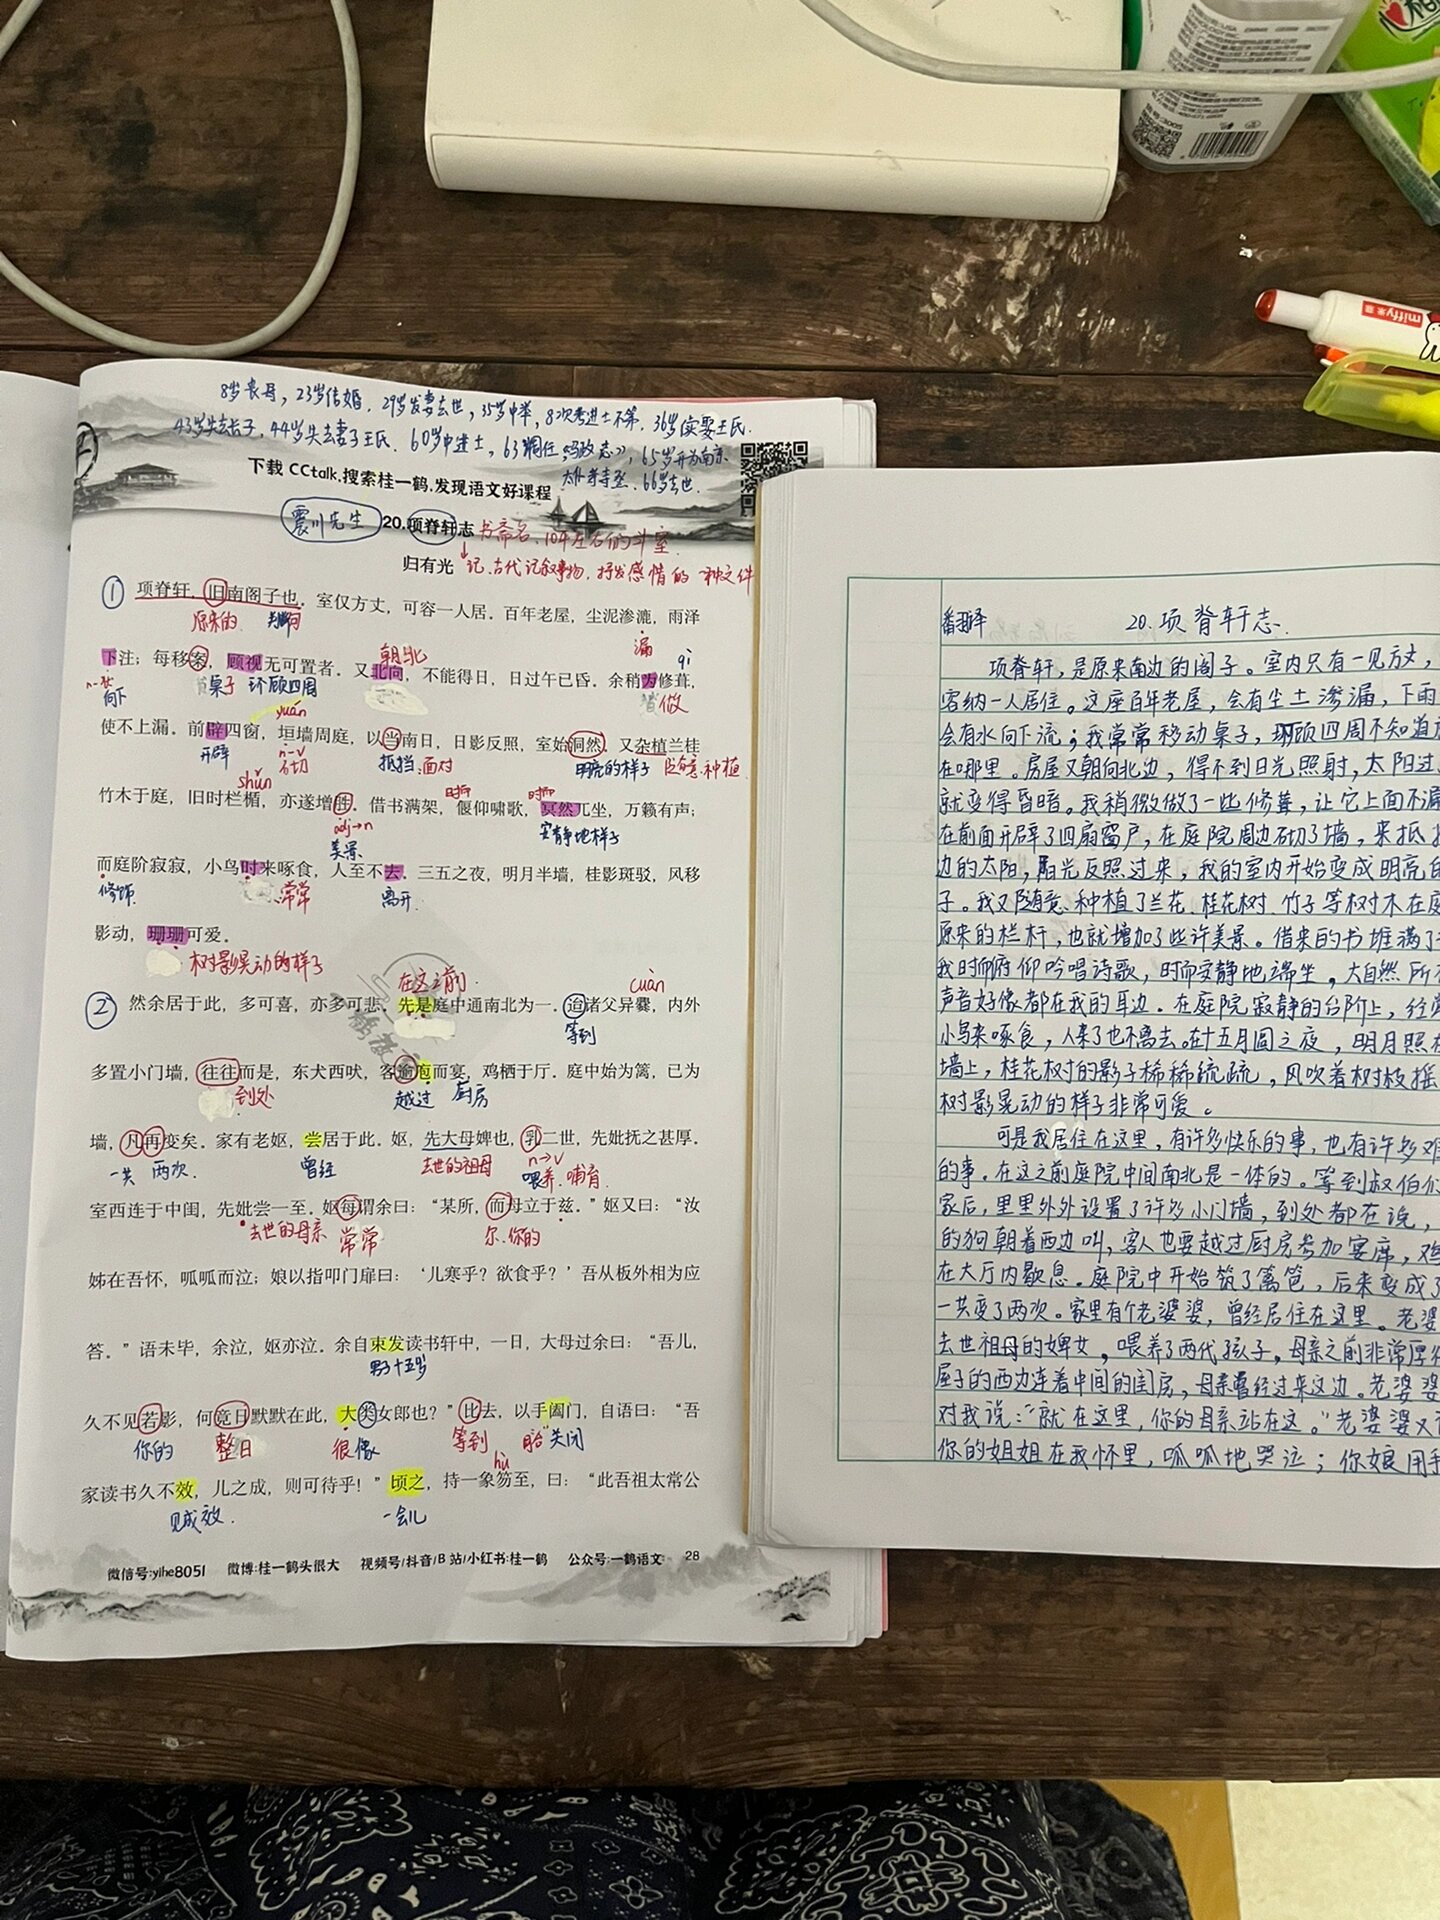 8岁丧母，23岁结婚，29岁发妻去世，35岁中举，8次考进士不第，36岁续娶王氏.
43岁失去长子，44岁失去妻子王氏、60岁中进士，63调任，65岁升为南京
太仆寺寺丞、66岁去世.
下载 CCtalk.搜索桂一鹤.发现语文好课程
震川先生 20.项脊轩志 书斋名、10平左右的斗室.
归有光 记、古代记叙事物，抒发感情的一种文体
① 项脊轩，旧南阁子也。室仅方丈，可容一人居。百年老屋，尘泥渗漉，雨泽
原来的 判断句 漏
下注；每移案，顾视无可置者。又北向，不能得日，日过午已昏。余稍为修葺，
朝北 qì
n-状 向下 桌子 环顾四周 做
yuán
使不上漏。前辟四窗，垣墙周庭，以当南日，日影反照，室始洞然。又杂植兰桂
开辟 n-v 砌 抵挡.面对 明亮的样子 随意.种植
shǔn
竹木于庭，旧时栏楯，亦遂增胜。借书满架，偃仰啸歌，冥然兀坐，万籁有声；
时而 时而
adj→n 美景 安静地样子
而庭阶寂寂，小鸟时来啄食，人至不去。三五之夜，明月半墙，桂影斑驳，风移
修饰 常常 离开.
影动，珊珊可爱。
树影晃动的样子
在这之前. cuàn
② 然余居于此，多可喜，亦多可悲。先是庭中通南北为一。迨诸父异爨，内外
等到
多置小门墙，往往而是，东犬西吠，客逾庖而宴，鸡栖于厅。庭中始为篱，已为
到处 越过 厨房
墙，凡再变矣。家有老妪，尝居于此。妪，先大母婢也，乳二世，先妣抚之甚厚。
一共 两次. 曾经 去世的祖母 n→v 喂养.哺育.
室西连于中闺，先妣尝一至。妪每谓余曰：“某所，而母立于兹。”妪又曰：“汝
去世的母亲 常常 尔.你的
姊在吾怀，呱呱而泣；娘以指叩门扉曰：‘儿寒乎？欲食乎？’吾从板外相为应
答。”语未毕，余泣，妪亦泣。余自束发读书轩中，一日，大母过余曰：“吾儿，
男子十五岁
久不见若影，何竟日默默在此，大类女郎也？”比去，以手阖门，自语曰：“吾
你的 整日 很像 等到 关闭
hù
家读书久不效，儿之成，则可待乎！”顷之，持一象笏至，曰：“此吾祖太常公
见成效. 一会儿
微信号:yihe8051 微博:桂一鹤头很大 视频号/抖音/B站/小红书:桂一鹤 公众号:一鹤语文 28
翻译 20.项脊轩志.
项脊轩，是原来南边的阁子。室内只有一见方丈，
容纳一人居住。这座百年老屋，会有尘土渗漏，下雨
会有水向下流；我常常移动桌子，环顾四周不知道放
在哪里。房屋又朝向北边，得不到日光照射，太阳过
就变得昏暗。我稍微做了一些修葺，让它上面不漏
在前面开辟了四扇窗户，在庭院周边砌了墙，来抵挡
边的太阳，阳光反照过来，我的室内开始变成明亮的
子。我又随意种植了兰花、桂花树、竹子等树木在庭
原来的栏杆，也就增加了些许美景。借来的书堆满了
我时而俯仰吟唱诗歌，时而安静地端坐。大自然所有
声音好像都在我的耳边。在庭院寂静的台阶上，经常
小鸟来啄食，人来了也不离去。在十五月圆之夜，明月照在
墙上，桂花树的影子稀稀疏疏，风吹着树枝摇
树影晃动的样子非常可爱。
可是我居住在这里，有许多快乐的事，也有许多难
的事。在这之前庭院中间南北是一体的。等到叔伯们
家后，里里外外设置了许多小门墙，到处都在说，
的狗朝着西边叫，客人也要越过厨房参加宴席，鸡
在大厅内歇息。庭院中开始筑了篱笆，后来变成了
一共变了两次。家里有个老婆婆，曾经居住在这里。老婆
去世祖母的婢女，喂养了两代孩子，母亲之前非常厚待
屋子的西边连着中间的闺房，母亲曾经过来这边。老婆婆
对我说：“就在这里，你的母亲站在这。”老婆婆又
你的姐姐在我怀里，呱呱地哭泣；你娘用手
miffy